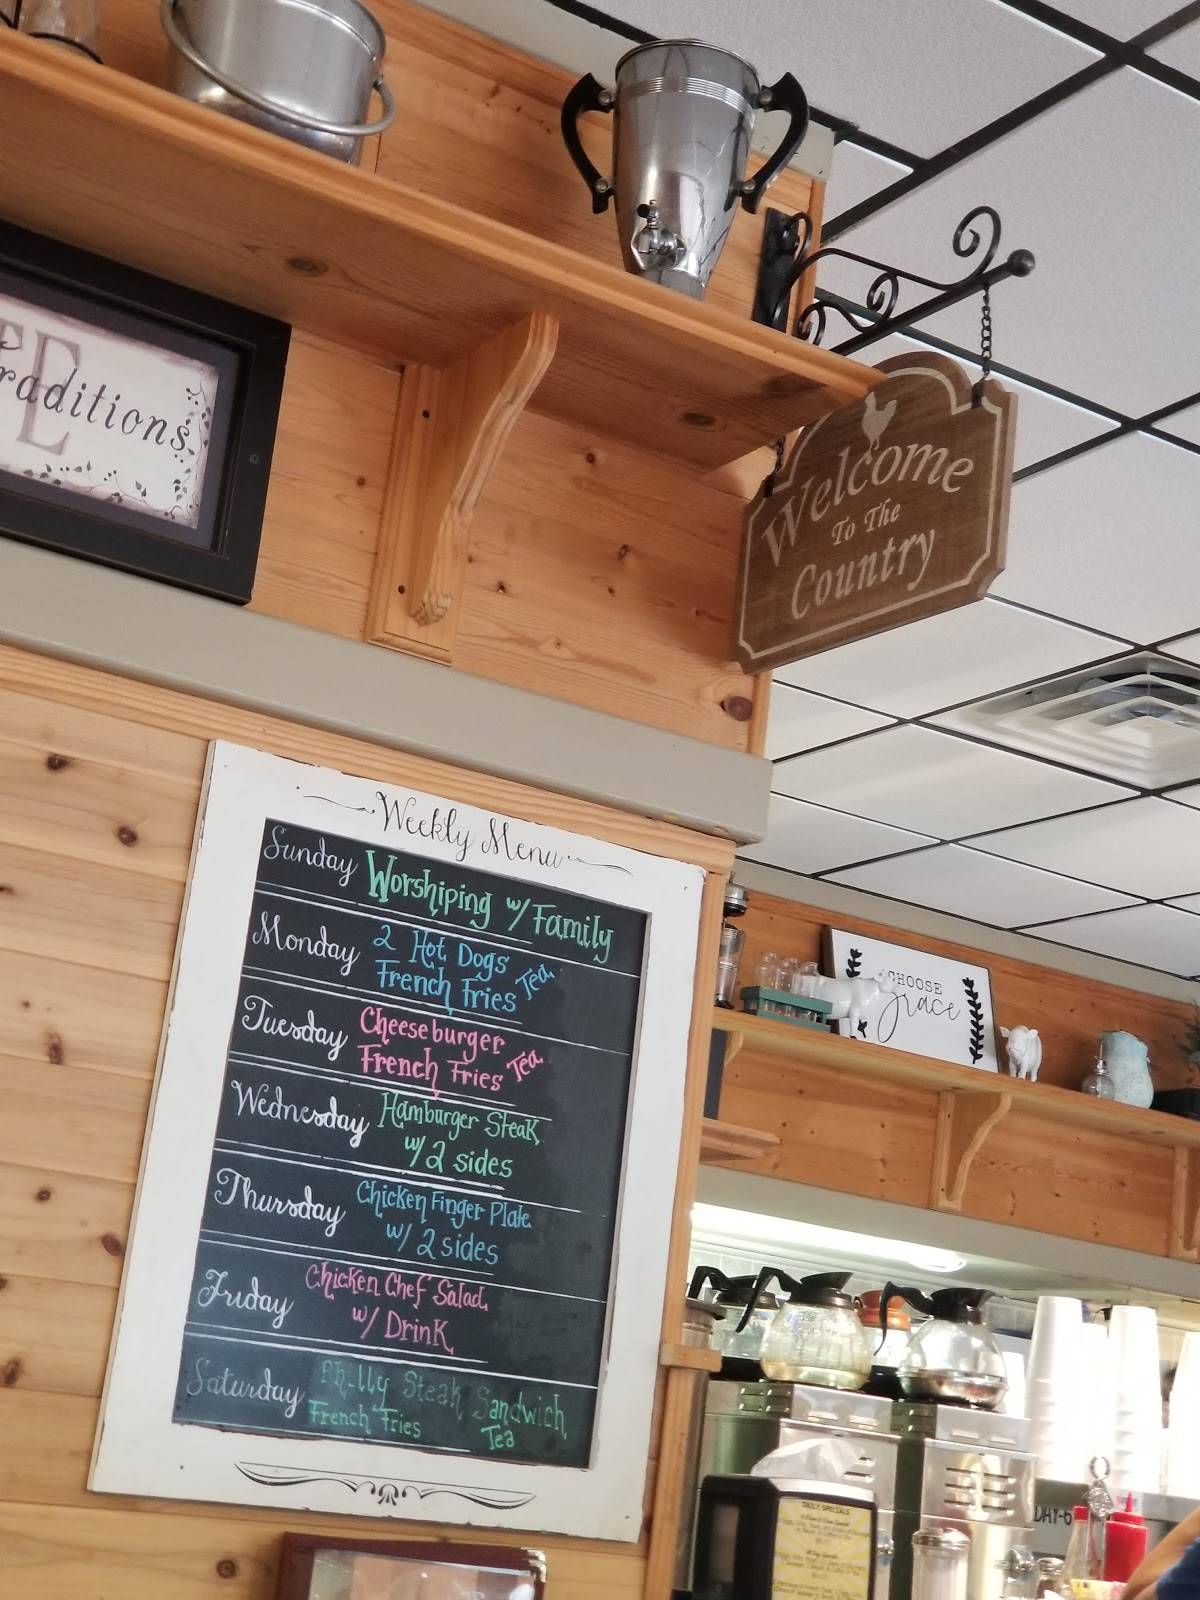 raditions
E
Welcome
To The
Country
Weekly Menu
Sunday Worshiping w/ Family
Monday 2 Hot Dogs
French Fries Tea
Tuesday Cheeseburger
French Fries Tea
Wednesday Hamburger Steak
w/ 2 sides
Thursday Chicken Finger Plate
w/ 2 sides
Friday Chicken Chef Salad
w/ Drink
Saturday Philly Steak Sandwich
French Fries Tea
CHOOSE
Grace
DAILY SPECIALS
DAY-6